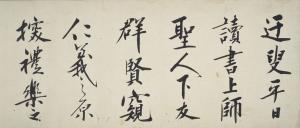 迂叟平日
讀書上師
聖人下友
群賢窺
仁義之原
探禮樂之